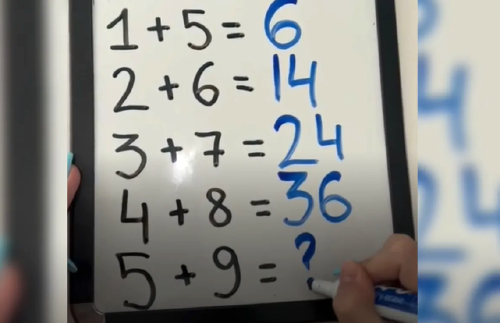 1 + 5 = 6
2 + 6 = 14
3 + 7 = 24
4 + 8 = 36
5 + 9 = ?